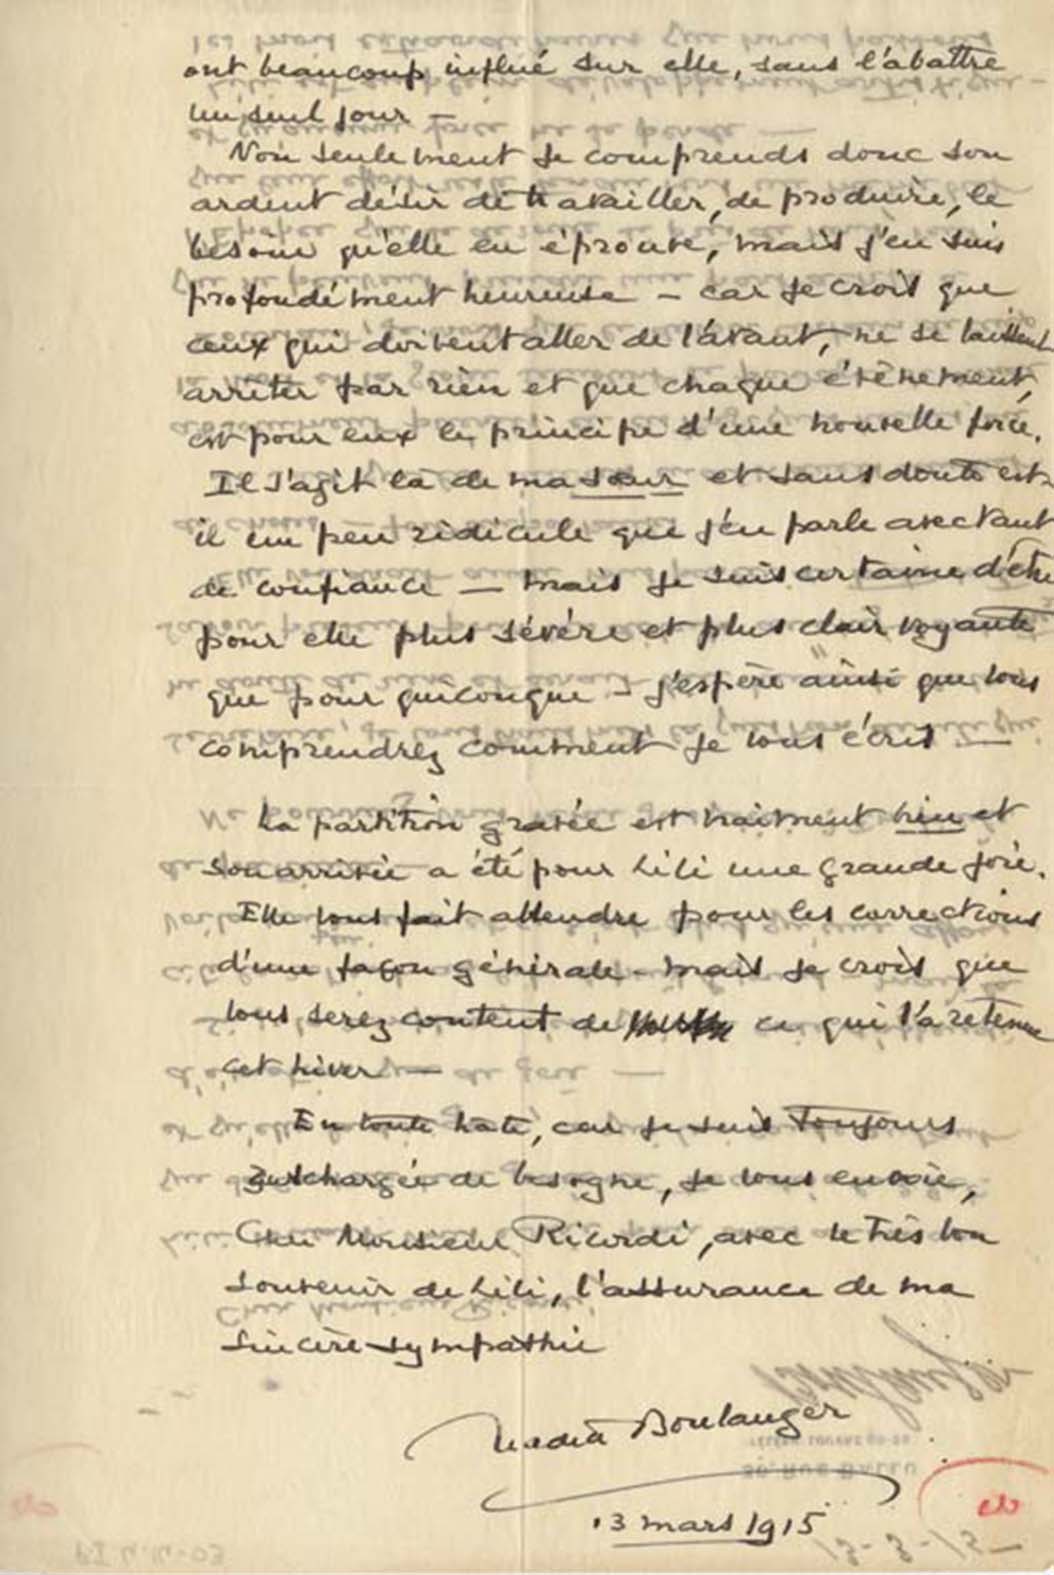 ont beaucoup influé sur elle, sans l'abattre
un seul jour —
Non seulement je comprends donc son
ardent désir de travailler, de produire, le
besoin qu'elle en éprouve, mais j'en suis
profondément heureuse — car je crois que
ceux qui doivent aller de l'avant, ne se laissent
arrêter par rien et que chaque évènement,
est pour eux le principe d'une nouvelle force.
Il s'agit là de ma sœur et sans doute est-
il un peu ridicule que j'en parle avec tant
de confiance — mais je suis certaine d'être
pour elle plus sévère et plus clairvoyante
que pour quiconque — j'espère ainsi que vous
comprendrez comment je vous écris —
La partition gravée est vraiment bien et
son arrivée a été pour Lili une grande joie.
Elle vous fait attendre pour les corrections
d'une façon générale — mais je crois que
vous serez content de ce qui l'a retenue
cet hiver —
En toute hâte, car je suis toujours
surchargée de besogne, je vous envoie,
Cher Monsieur Ricordi, avec le très bon
souvenir de Lili, l'assurance de ma
sincère sympathie
Nadia Boulanger
13 mars 1915